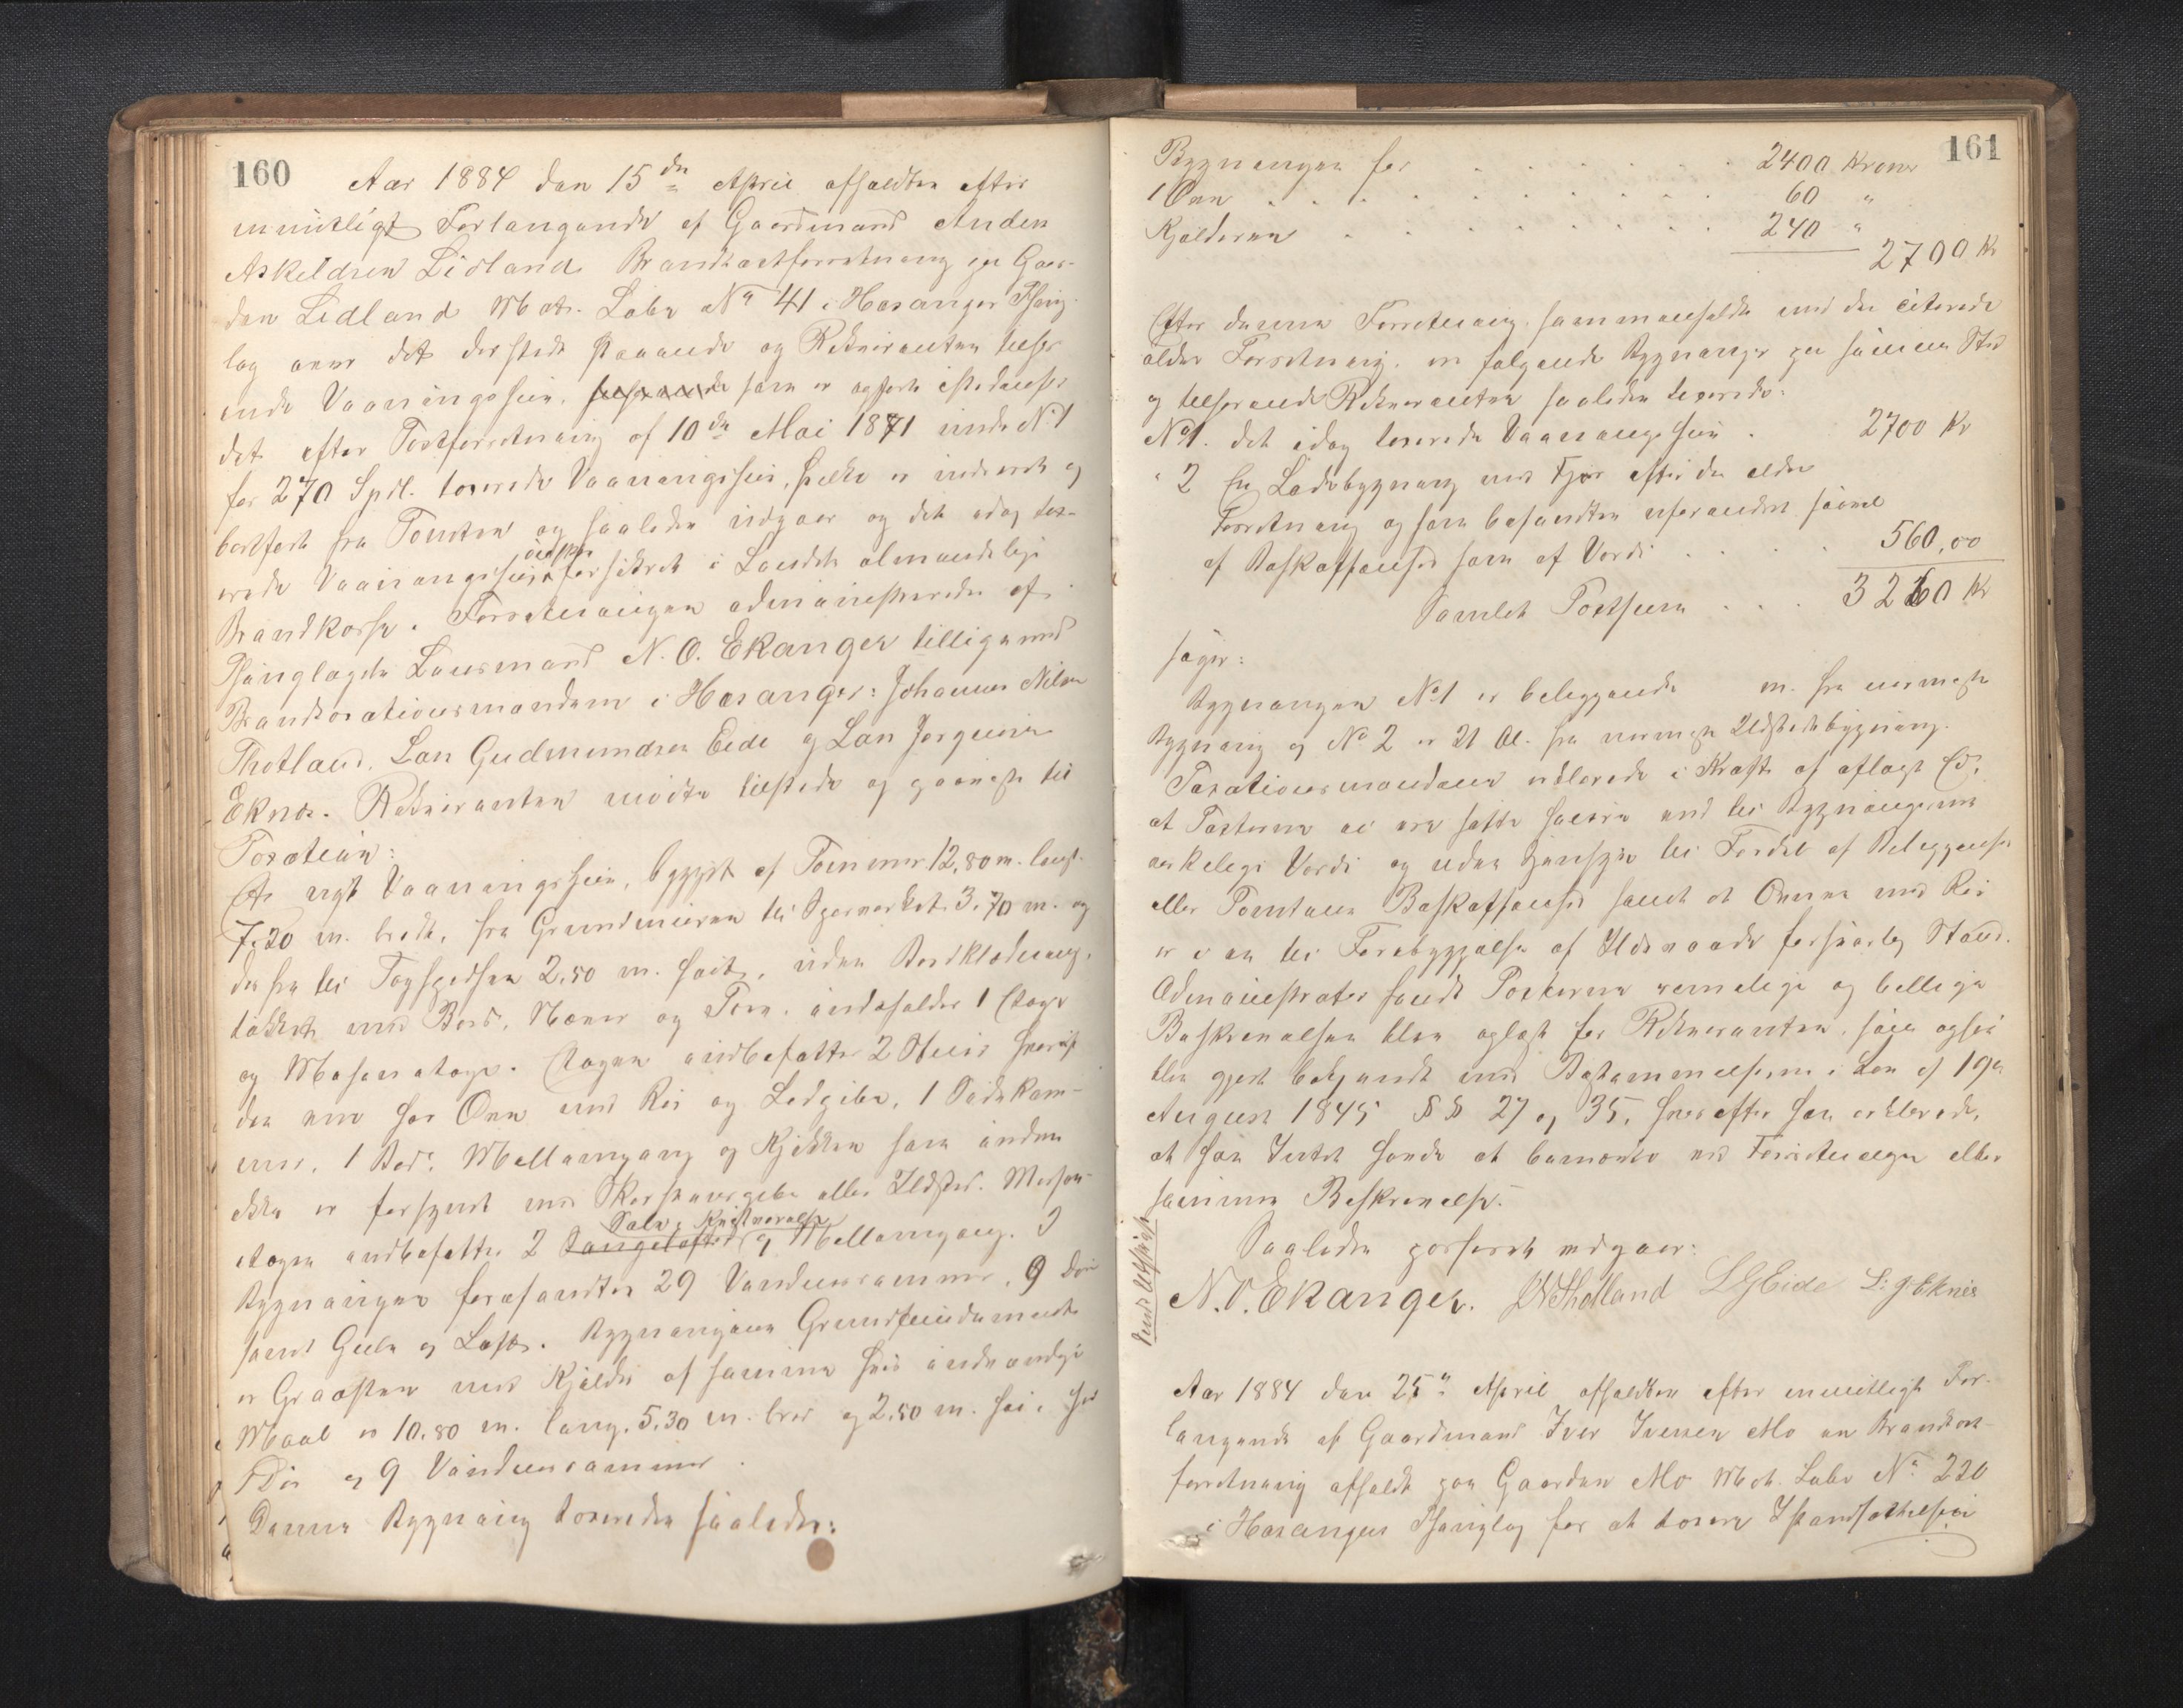 160
Aar 1884 den 15de April afholdtes efter
mundtligt Forlangende af Gaardmand Anders
Askeldsen Lidland Brandtaxtforretning paa Gaar-
den Lidland Matr. Løbe No 41 i Hosanger Thing-
lag over det dersteds staaende og Rekvirenten tilhør-
ende Vaaningshuus, som er opført istedenfor
det efter Taxtforretning af 10de Mai 1871 under No 1
for 270 Spd. taxerede Vaaningshuus, hvilke er nedrevet og
bortført fra Tomten og saaledes udgaar og det idag tax-
erede Vaaningshuus ønskes forsikret i Landets almindelige
Brandkasse. Forretningen administreredes af
Thinglagets Lensmand N. O. Ekanger tilligemed
Brandtaxationsmændene i Hosanger: Johannes Nilsen
Thotland, Lars Gudmundsen Eide og Lars Jørgensen
Eknes. Rekvirenten mødte tilstede og paaviste til
Taxation:
Et nyt Vaaningshuus, bygget af Tømmer 12,80 m. langt
7,20 m. bredt, fra Grundmuren til Sperreværket 3,70 m. og
derfra til Tagspidsen 2,50 m. høit, uden Bordklædning,
tækket med Bord, Næver og Torv, indeholder 1 Etage
og Mesanetage. Etagen indbefatter 2 Stuer hvoraf
den ene har Ovn med Rør og Ledpibe, 1 Sidekam-
mer, 1 Bod, Mellemgang og Kjøkken som inden-
dkke er forsynet med Skorsteenspibe eller Ildsted. Mesan-
etagen indbefatter 2 Sale, Kvistværelse og Mellemgang. I
Bygningen forefandtes 29 Vinduesrammer, 9 Døre
samt Gulv og Loft. Bygningens Grundfundament
er Graasten med Kjelder af samme hvis indvendige
Maal er 10,80 m. lang, 5,30 m. bred og 2,50 m. høi, har
1 Dør og 9 Vinduesrammer.
Denne Bygning taxeredes saaledes:
161
Bygningen for . . . . . . 2400 Kroner
1 Ovn . . . . . . . . . 60 "
Kjelderen . . . . . . . . 240 "
2700 Kr
Efter denne Forretning sammenholdt med den citerede
ældre Forretning, er følgende Bygninger paa samme Sted
og tilhørende Rekvirenten saaledes taxerede:
No 1. det idag taxerede Vaaningshuus . 2700 Kr
" 2 En Ladebygning med Fjøs efter den ældre
Forretning og som befandtes uforandret saavel
af Beskaffenhed som af Værdi . . . . . 560,00
Samlet Taxtsum . . . 3260 Kr
siger:
Bygningen No 1 er beliggende m. fra nærmeste
Bygning og No 2 er 21 Al. fra nærmeste Ildstedsbygning.
Taxationsmændene erklærede i Kraft af aflagt Ed,
at Taxterne ei ere satte høiere end til Bygningernes
virkelige Værdi og uden Hensyn til Fordel af Beliggenhed
eller Tomtens Beskaffenhed samt at Ovnen med Rør
er i en til Forebyggelse af Ildsvaade forsvarlig Stand.
Administrator fandt Taxterne rimelige og billige
Beskrivelsen blev oplæst for Rekvirenten, som ogsaa
blev gjort bekjendt med Bestemmelserne i Lov af 19de
August 1845 §§ 27 og 35, hvorefter han erklærede,
at han Intet havde at bemærke ved Forretningen eller
sammes Beskrivelse.
Saaledes passeret vidgaar:
N. O. Ekanger. JNThotland LGEide L. J. Eknes
Aar 1884 den 25de April afholdtes efter mundtligt For-
langende af Gaardmand Iver Iversen Mo en Brandtaxt-
forretning afholdt paa Gaarden Mo Matr. Løbe No 220
i Hosanger Thinglag for at taxere Istandsættelsen